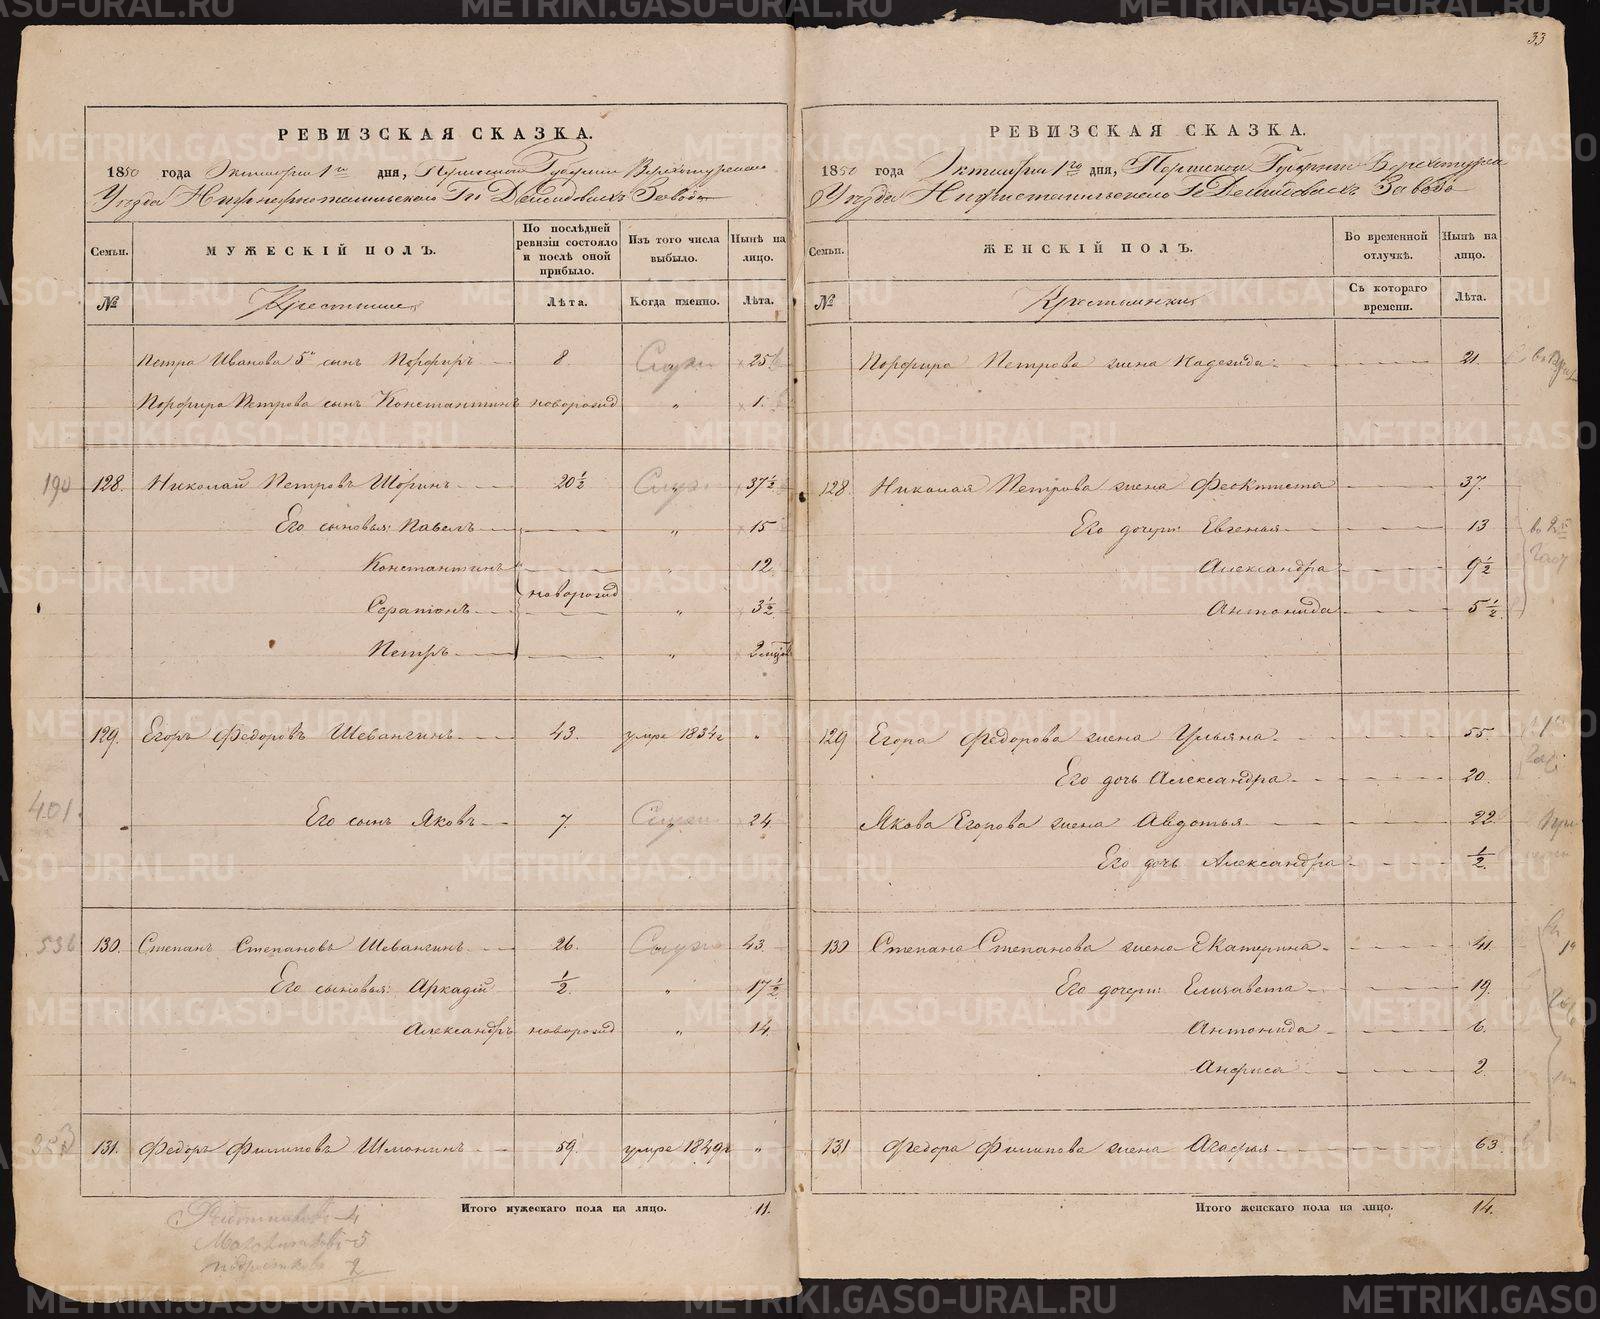 33
РЕВИЗСКАЯ СКАЗКА.
1850 года Октября 1го дня, Пермской Губернiи Верхотурскаго
Уѣзда Нижнетагильскаго Гг Демидовыхъ Завода
Семьи.
МУЖЕСКІЙ ПОЛЪ.
По послѣдней ревизіи состояло и послѣ оной прибыло.
Изъ того числа выбыло.
Нынѣ на лицо.
№
Крестьяне
Лѣта.
Когда именно.
Лѣта.
Петра Иванова 5й сынъ Порфиръ 8. 25
Порфира Петрова сынъ Константинъ новорожд „ 1.
190 128. Николай Петровъ Шоринъ 20½ „ 37½
Его сыновья: Павелъ „ 15
Константинъ „ 12
новорожд
Серапіонъ „ 3½
Петръ „ 2
129. Егоръ Федоровъ Шевангинъ 43. умре 1834г „
401. Его сынъ Яковъ 7. „ 24
536 130. Степанъ Степановъ Шевангинъ 26. 43.
Его сыновья: Аркадiй ½. „ 17½
Александръ новорожд „ 14.
131. Федоръ Филиповъ Шмонинъ 59. умре 1849г „
Итого мужескаго пола на лицо. 11.
Работниковъ 4
5
2
РЕВИЗСКАЯ СКАЗКА.
1850 года Октября 1го дня, Пермской Губернiи Верхотурскаго
Уѣзда Нижнетагильскаго Гг Демидовыхъ Завода
Семьи.
ЖЕНСКІЙ ПОЛЪ.
Во временной отлучкѣ.
Нынѣ на лицо.
№
Крестьянки
Съ котораго времени.
Лѣта.
Порфира Петрова жена Надежда 21.
128 Николая Петрова жена Феоктиста 37.
Его дочери: Евгенья 13
Александра 9½
Антонида 5½
129 Егора Федорова жена Ульяна 55.
Его дочь Александра 20.
Якова Егорова жена Авдотья 22
Его дочь Александра ½
130 Степана Степанова жена Екатерина 41.
Его дочери: Елизавета 19.
Антонида 6.
Анфиса 2.
131 Федора Филипова жена Агафья 63.
Итого женскаго пола на лицо. 14.
METRIKI.GASO-URAL.RU